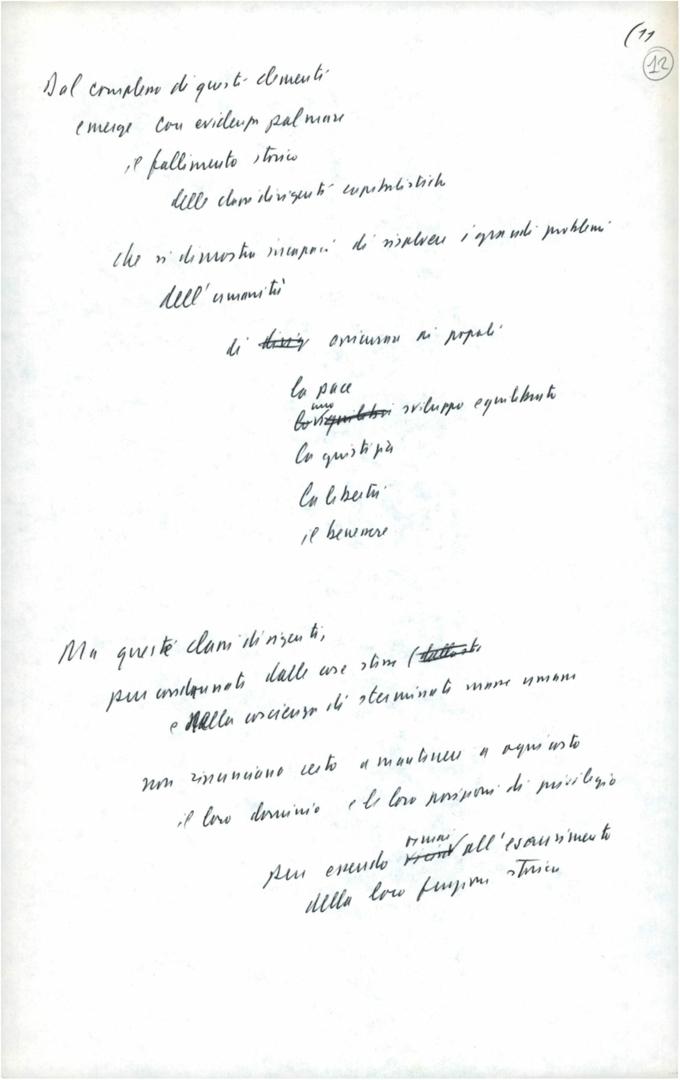 (11
12
Dal complesso di questi elementi
emerge con evidenza palmare
il fallimento storico
delle classi dirigenti capitalistiche
che si dimostra incapaci di risolvere i grandi problemi
dell'umanità
di assicurare ai popoli
la pace
uno
sviluppo equilibrato
la giustizia
la libertà
il benessere
Ma queste classi dirigenti,
pur condannati dalle cose stesse (
e dalla coscienza di sterminate masse umane
non rinunciano certo a mantenere a ogni costo
il loro dominio e le loro posizioni di privilegio
ormai
pur essendo all'esaurimento
della loro funzione storica